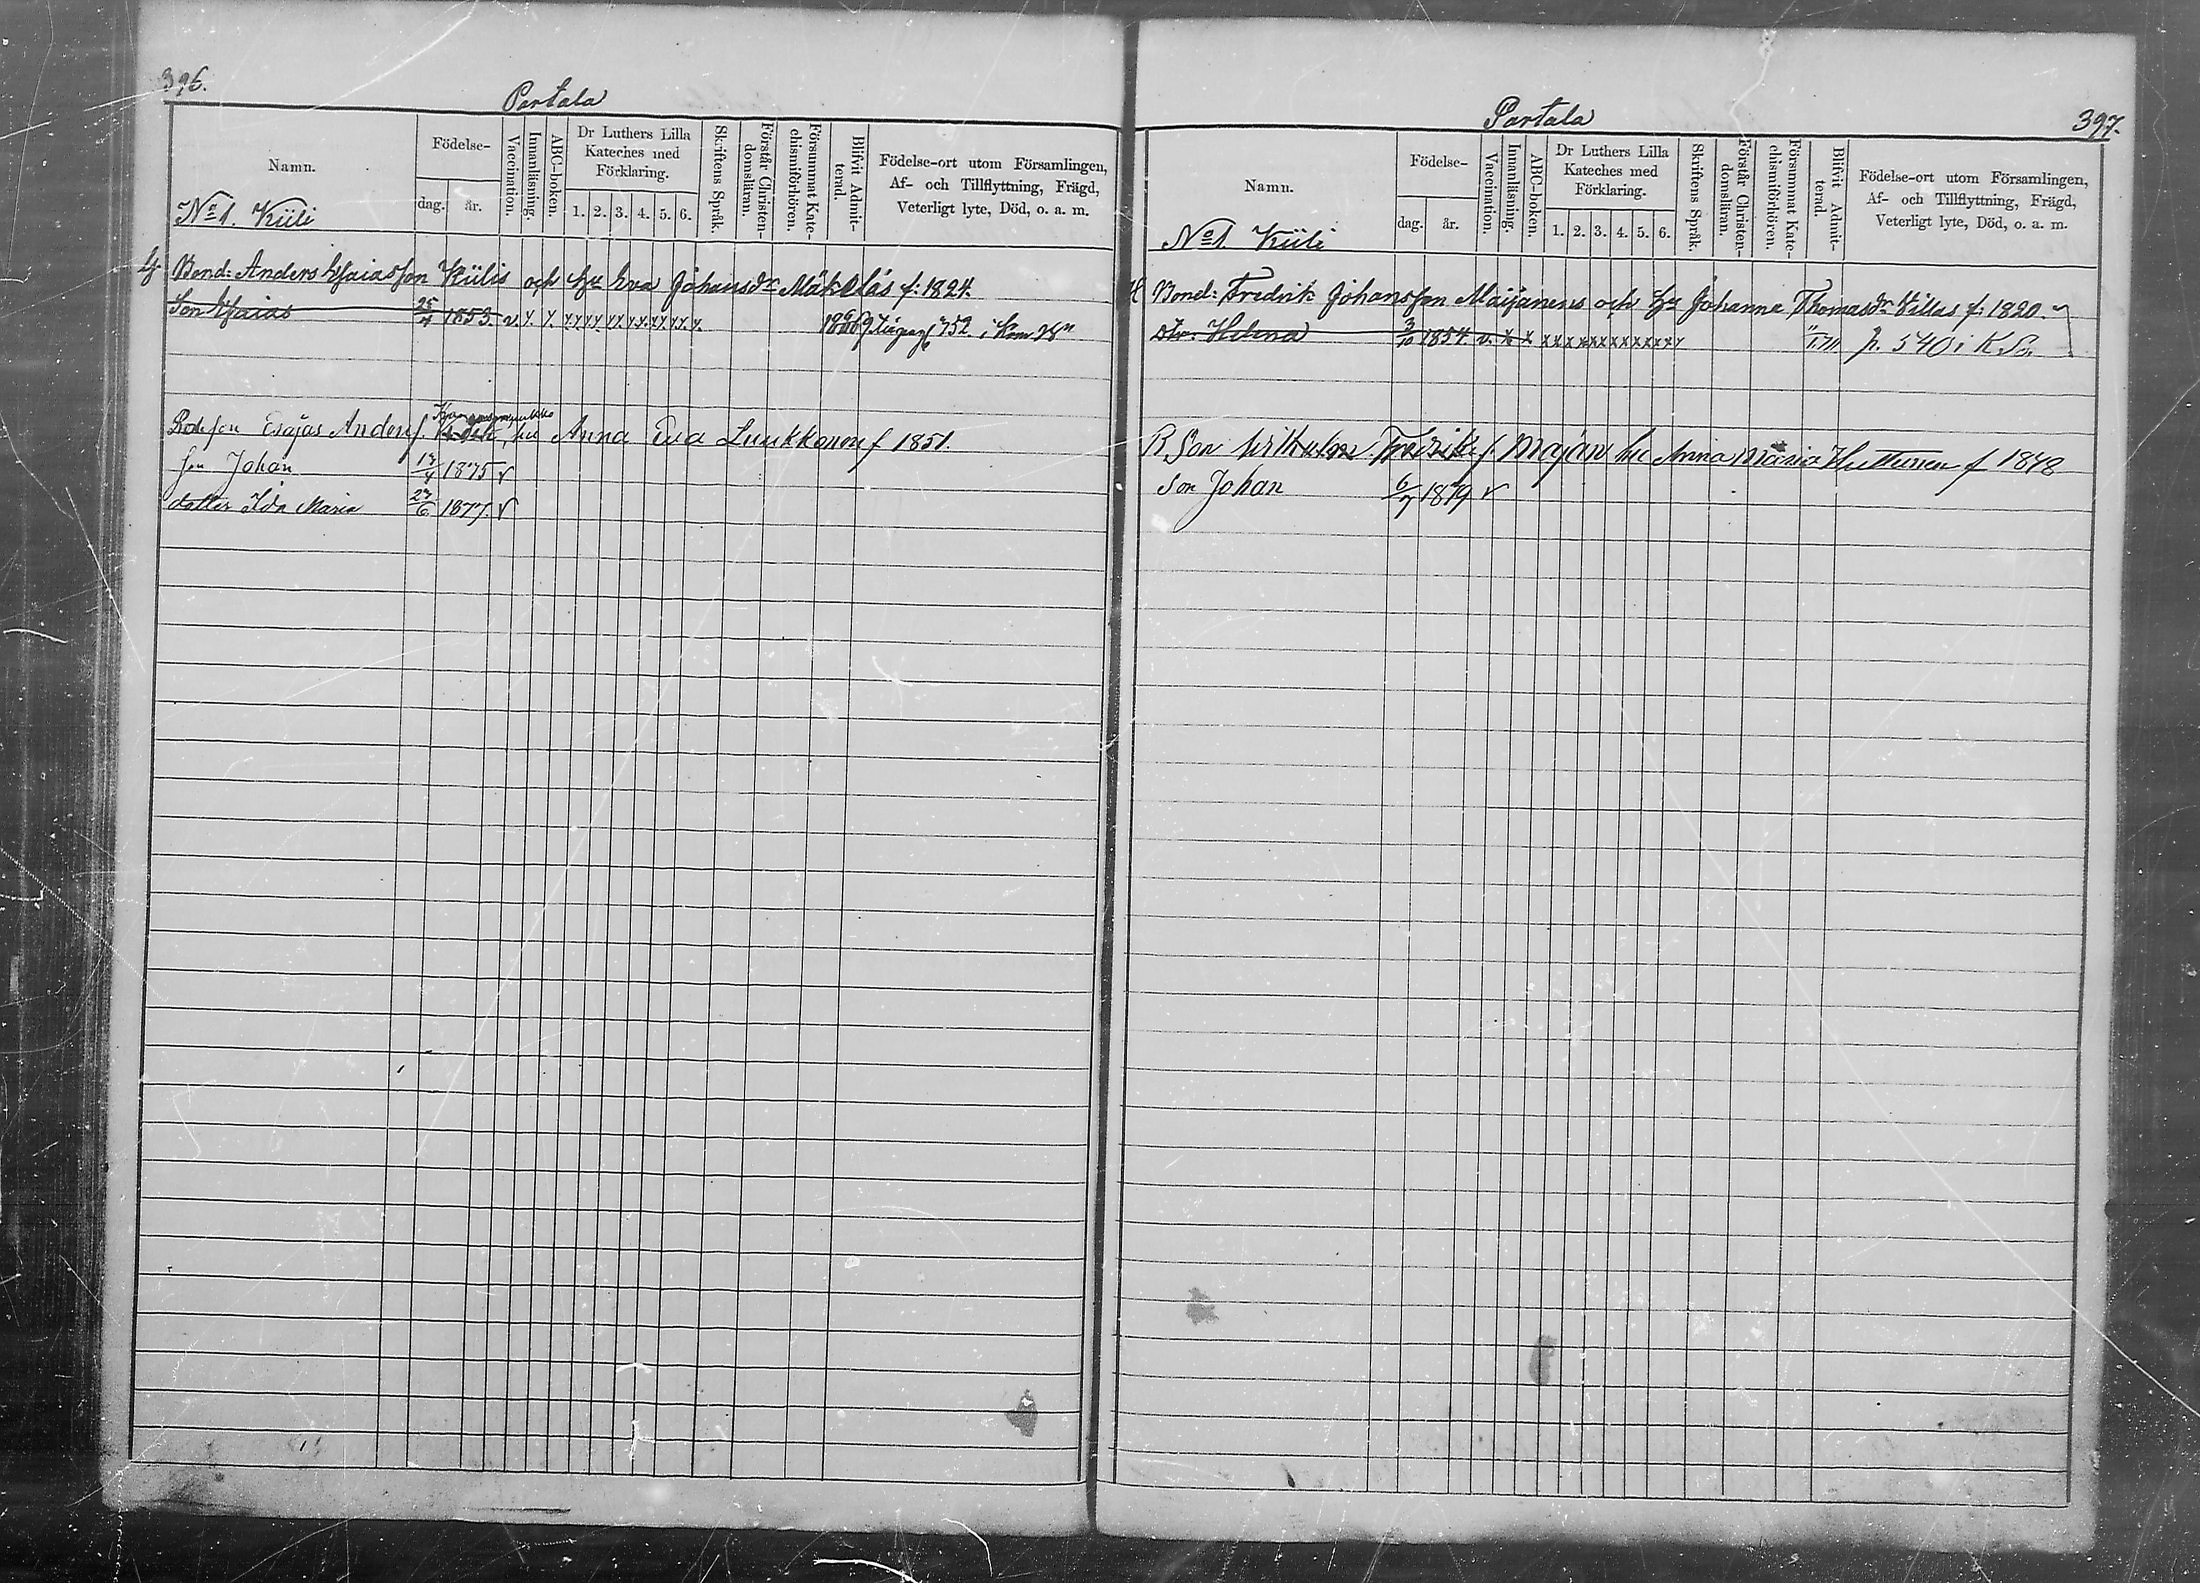 396.
Partala
Namn.
Födelse-
dag.
år.
Vaccination.
Innanläsning.
ABC-boken.
Dr Luthers Lilla
Kateches med
Förklaring.
1. 2. 3. 4. 5. 6.
Skriftens Språk.
Förstår Christen-
domsläran.
Försummat Kate-
chismiförhören.
Blifvit Admit-
terad.
Födelse-ort utom Församlingen,
Af- och Tillflyttning, Frägd,
Veterligt lyte, Död, o. a. m.
No 1. Küli
Bond: Anders Esaiasson Külis och hu Eva Johansdr Mäkeläs f: 1824.
Son Esaias 25/4 1853. v. x. x. 752. i Kom
Anders Anna Eva Luukkonen f 1851.
son Johan 1875 v
dotter Ida Maria 27/6 1877. v
Partala
397.
Namn.
Födelse-
dag.
år.
Vaccination.
Innanläsning.
ABC-boken.
Dr Luthers Lilla
Kateches med
Förklaring.
1. 2. 3. 4. 5. 6.
Skriftens Språk.
Förstår Christen-
domsläran.
Försummat Kate-
chismiförhören.
Blifvit Admit-
terad.
Födelse-ort utom Församlingen,
Af- och Tillflyttning, Frägd,
Veterligt lyte, Död, o. a. m.
No 1 Küli
Bond: Fredrik Johansson Maijanens och hu Johanna Thomasdr Villas f: 1820.
Dtr. Helena 3/10 1854 v. x x p. 540 i K.B.
R Son Wilhelm Fredrik f. Majan hu Anna Maria Huttunen f 1848
Son Johan 6/7 1879 v